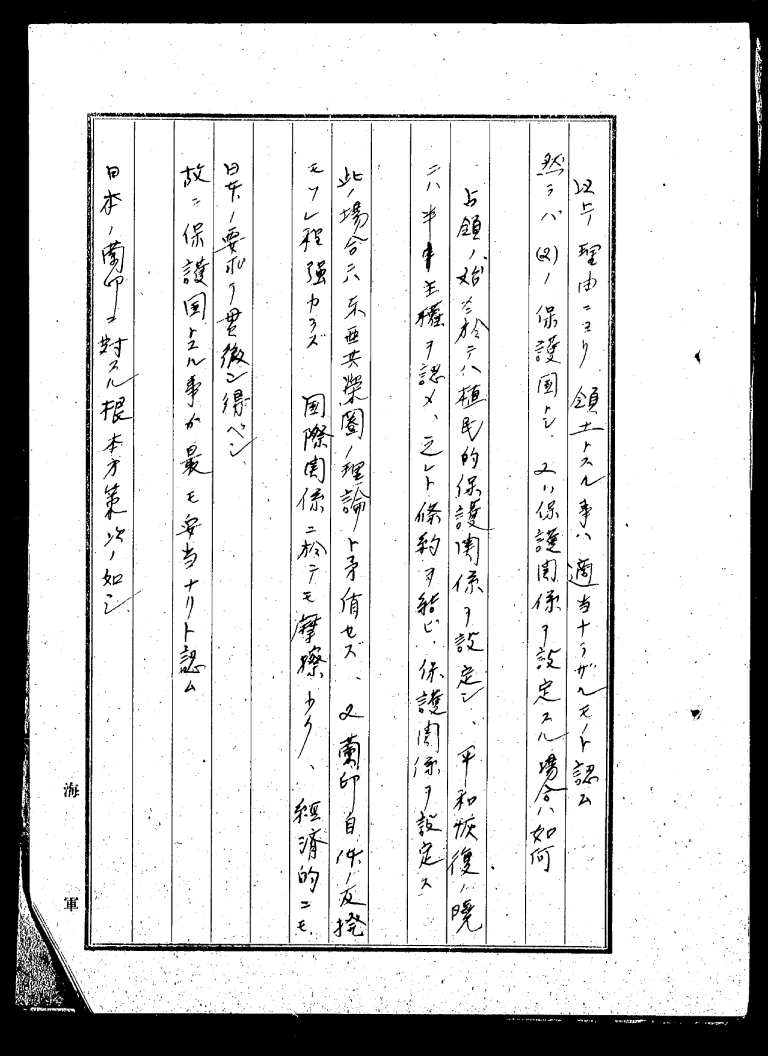 以上ノ理由ニヨリ領土トスル事ハ適当ナラザルモノト認ム
然ラバ(2)ノ保護国トシ、又ハ保護関係ヲ設定スル場合ハ如何
占領ノ始メニ於テハ植民的保護関係ヲ設定シ、平和恢復ノ暁
ニハ半主権ヲ認メ、之レト條約ヲ結ビ、保護関係ヲ設定ス
此ノ場合ハ东亜共榮圏ノ理論ト矛盾セズ、又蘭印自体ノ反撥
モソレ程强カラズ 国際関係ニ於テモ摩擦少ク、經済的ニモ
日本ノ要求ヲ貫徹シ得ベシ
故ニ保護国トスル事が最モ妥当ナリト認ム
日本ノ蘭印ニ對スル根本方策次ノ如シ
海軍